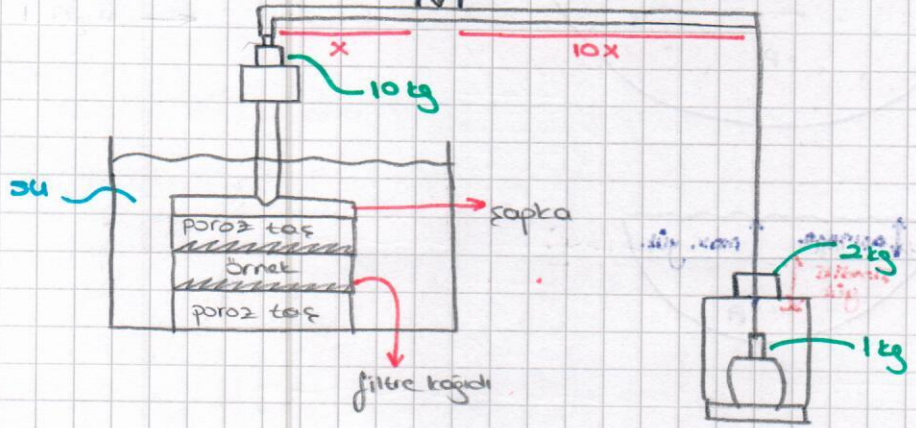 x
10x
10 kg
su
şapka
poroz taş
örnek
poroz taş
filtre kağıdı
2 kg
1 kg